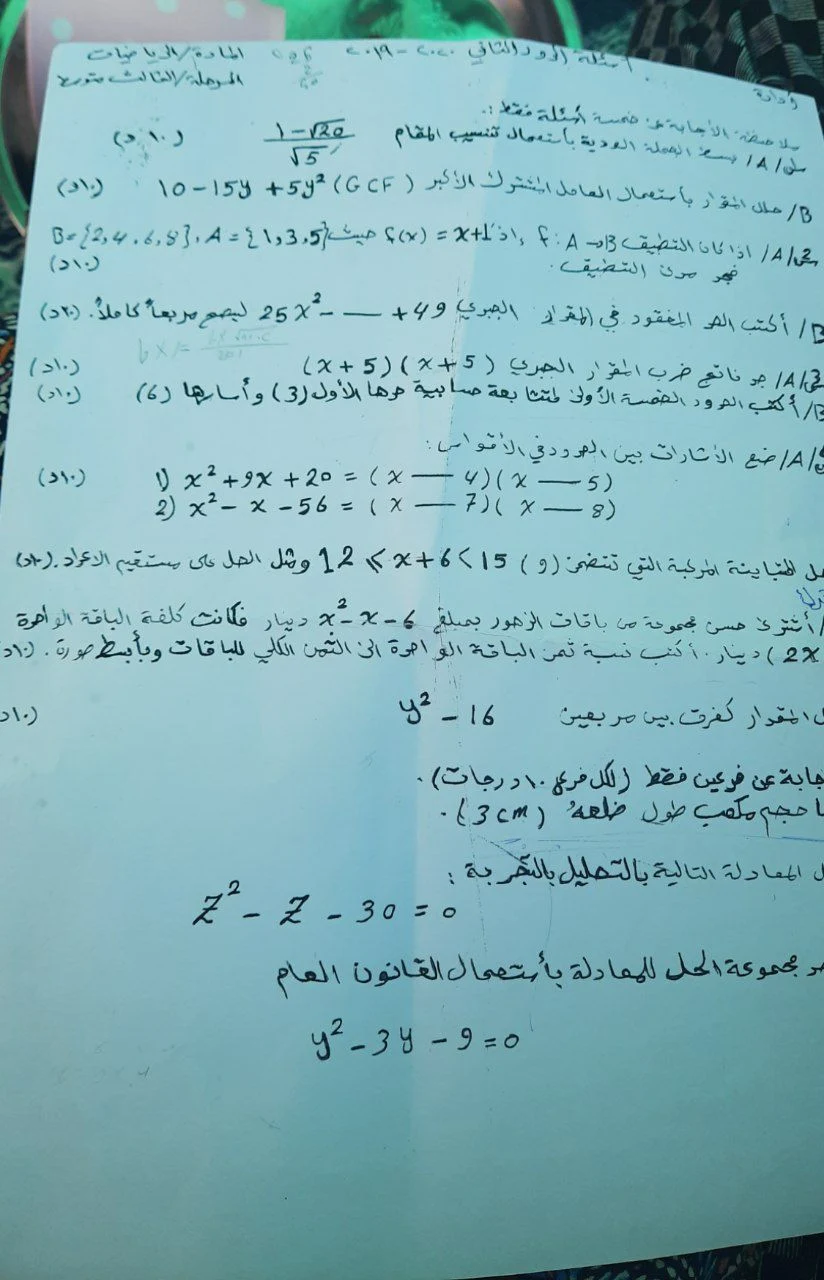 أسئلة الدور الثاني ٢٠١٩ - ٢٠٢٠ المادة/الرياضيات
المرحلة/الثالث متوسط
ملاحظة: الأجابة عن خمسة أسئلة فقط:.
س١/A/ بسط الجملة العددية بأستعمال تنسيب المقام 1-√20/√5 (١٠د)
B/ حلل المقدار بأستعمال العامل المشترك الأكبر (GCF) 10-15y+5y² (١٠د)
س٢/A/ اذا كان التطبيق f: A→B, اذ f(x) = x+1 حيث A = {1,3,5}, B={2,4,6,8}
فجد مدى التطبيق. (١٠د)
B/ أكتب الحد المفقود في المقدار الجبري 25x² - — + 49 ليصبح مربعاً كاملاً. (١٠د)
س٣/A/ جد ناتج ضرب المقدار الجبري (x+5)(x+5) (١٠د)
B/ أكتب الحدود الخمسة الأولى لمتتابعة حسابية حدها الأول (3) وأساسها (6) (١٠د)
A/ ضع الأشارات بين الحدود في الأقواس:
1) x²+9x+20 = (x — 4)(x — 5) (١٠د)
2) x²-x-56 = (x — 7)(x — 8)
حل المتباينة المركبة التي تتضمن (و) 12 ⩽ x+6 < 15 ومثل الحل على مستقيم الاعداد. (١٠د)
/ أشترى حسن مجموعة من باقات الزهور بمبلغ x²-x-6 دينار فكانت كلفة الباقة الواحدة
(2x دينار. أكتب نسبة ثمن الباقة الواحدة الى الثمن الكلي للباقات وبأبسط صورة. (١٠د
المقدار كفرق بين مربعين y² - 16 (١٠د)
عن فرعين فقط (لكل فرع ١٠ درجات).
حجم مكعب طول ضلعه (3cm).
المعادلة التالية بالتحليل بالتجربة:
Z² - Z - 30 = 0
مجموعة الحل للمعادلة بأستعمال القانون العام
y² - 3y - 9 = 0